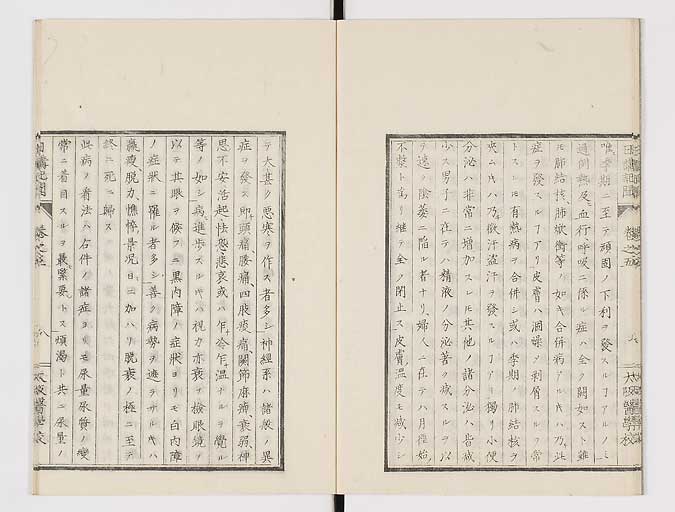 唯季期ニ至テ頑固ノ下利ヲ發スルヿアルノミ
過例熱及血行呼吸ニ係ル症ハ全ク闕如スト雖
モ肺結核、肺焮衝等ノ如キ合併病アルキハ乃此
症ヲ發スルヿアリ皮膚ハ涸燥シ剥屑スルヲ常
トスレ𪜈有熱病ヲ合併シ或ハ季期ノ肺結核ヲ
夾ニキハ乃徽汗盗汗ヲ發スルヿアリ獨リ小便
分泌ハ非常ニ增加スレ𪜈其他ノ諸分泌ハ皆減
少ス男子ニ在テハ精液ノ分泌著ク減スルヲ以
テ遂ニ陰萎ニ陷ル者ナリ婦人ニ在テハ月經始
不整トナリ継テ全ク閉止ス皮膚ノ温度モ減少シ
テ大甚ク悪寒ヲ作ス者多シ神經系ハ諸般ノ異
症ヲ發ス即頭痛、腰痛、四肢疼痛關節麻痺、衰弱神
思不安活起、怯懼悲哀或ハ乍冷乍温ナルヲ覺ル
等ノ如シ病進歩スルキハ視力亦衰フ檢眼鏡ヲ
以テ其眼ヲ候フニ黒内障ノ症狀ヨリモ白内障
ノ症狀ニ羅ル者多シ善ク病勢ヲ遮テザルキハ
羸瘦脱力、憔悴景况日ニ加ハリ脱衰ノ極ニ至テ
終ニ死ニ歸ス
此病ノ看法ハ右件ノ諸症ヨリモ尿量尿質ノ變
常ニ着目スルヲ最緊要トス煩渇ト共ニ尿量ノ
日講記聞
八
大阪醫學校